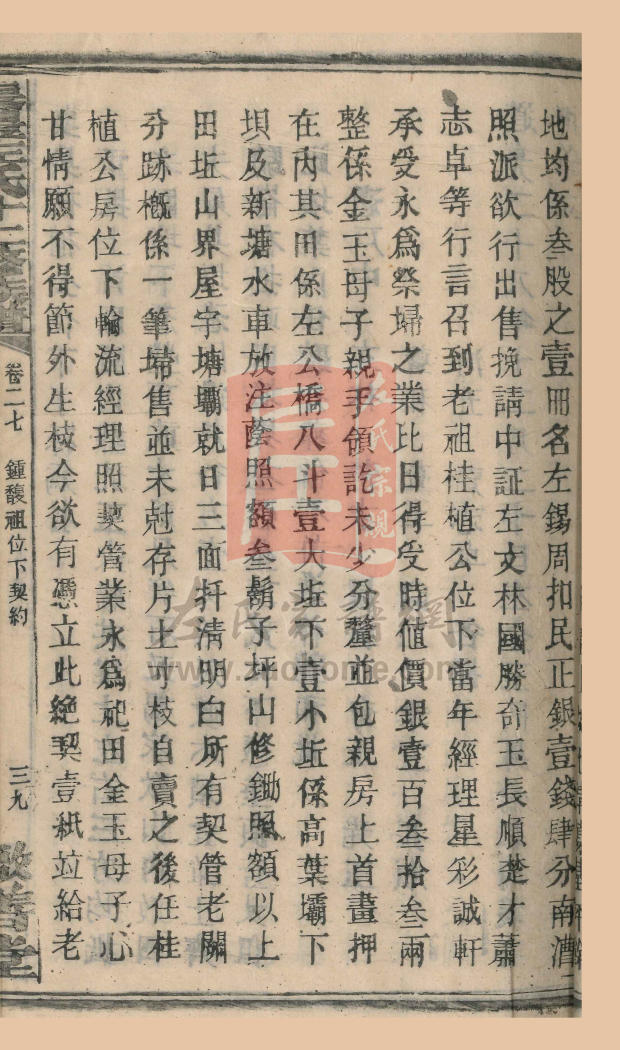 地均係叁股之壹冊名左錫周扣民正銀壹錢肆分南漕
照派欲行出售挽請中証左文林國勝奇玉長順楚才蕭
志卓等行言召到老祖桂植公位下當年經理星彩誠軒
承受永爲祭埽之業比日得受時値價銀壹百叁拾叁兩
整係金玉母子親手領訖未少分釐並包親房上首畫押
在內其田係左公橋八斗壹大坵下壹小坵係高葉壩下
垻及新塘水車放注蔭照額叁鬍子坪山修鋤照額以上
田坵山界屋宇塘壩就日三面扦清明白所有契管老關
分跡槪係一筆埽售並未尅存片土寸枝自賣之後任桂
植公房位下輪流經理照契管業永爲祀田金玉母子心
甘情願不得節外生枝今欲有憑立此絶契壹紙竝給老
卷二七 鍾馥祖位下契約 三九
左氏宗親
左氏家譜網